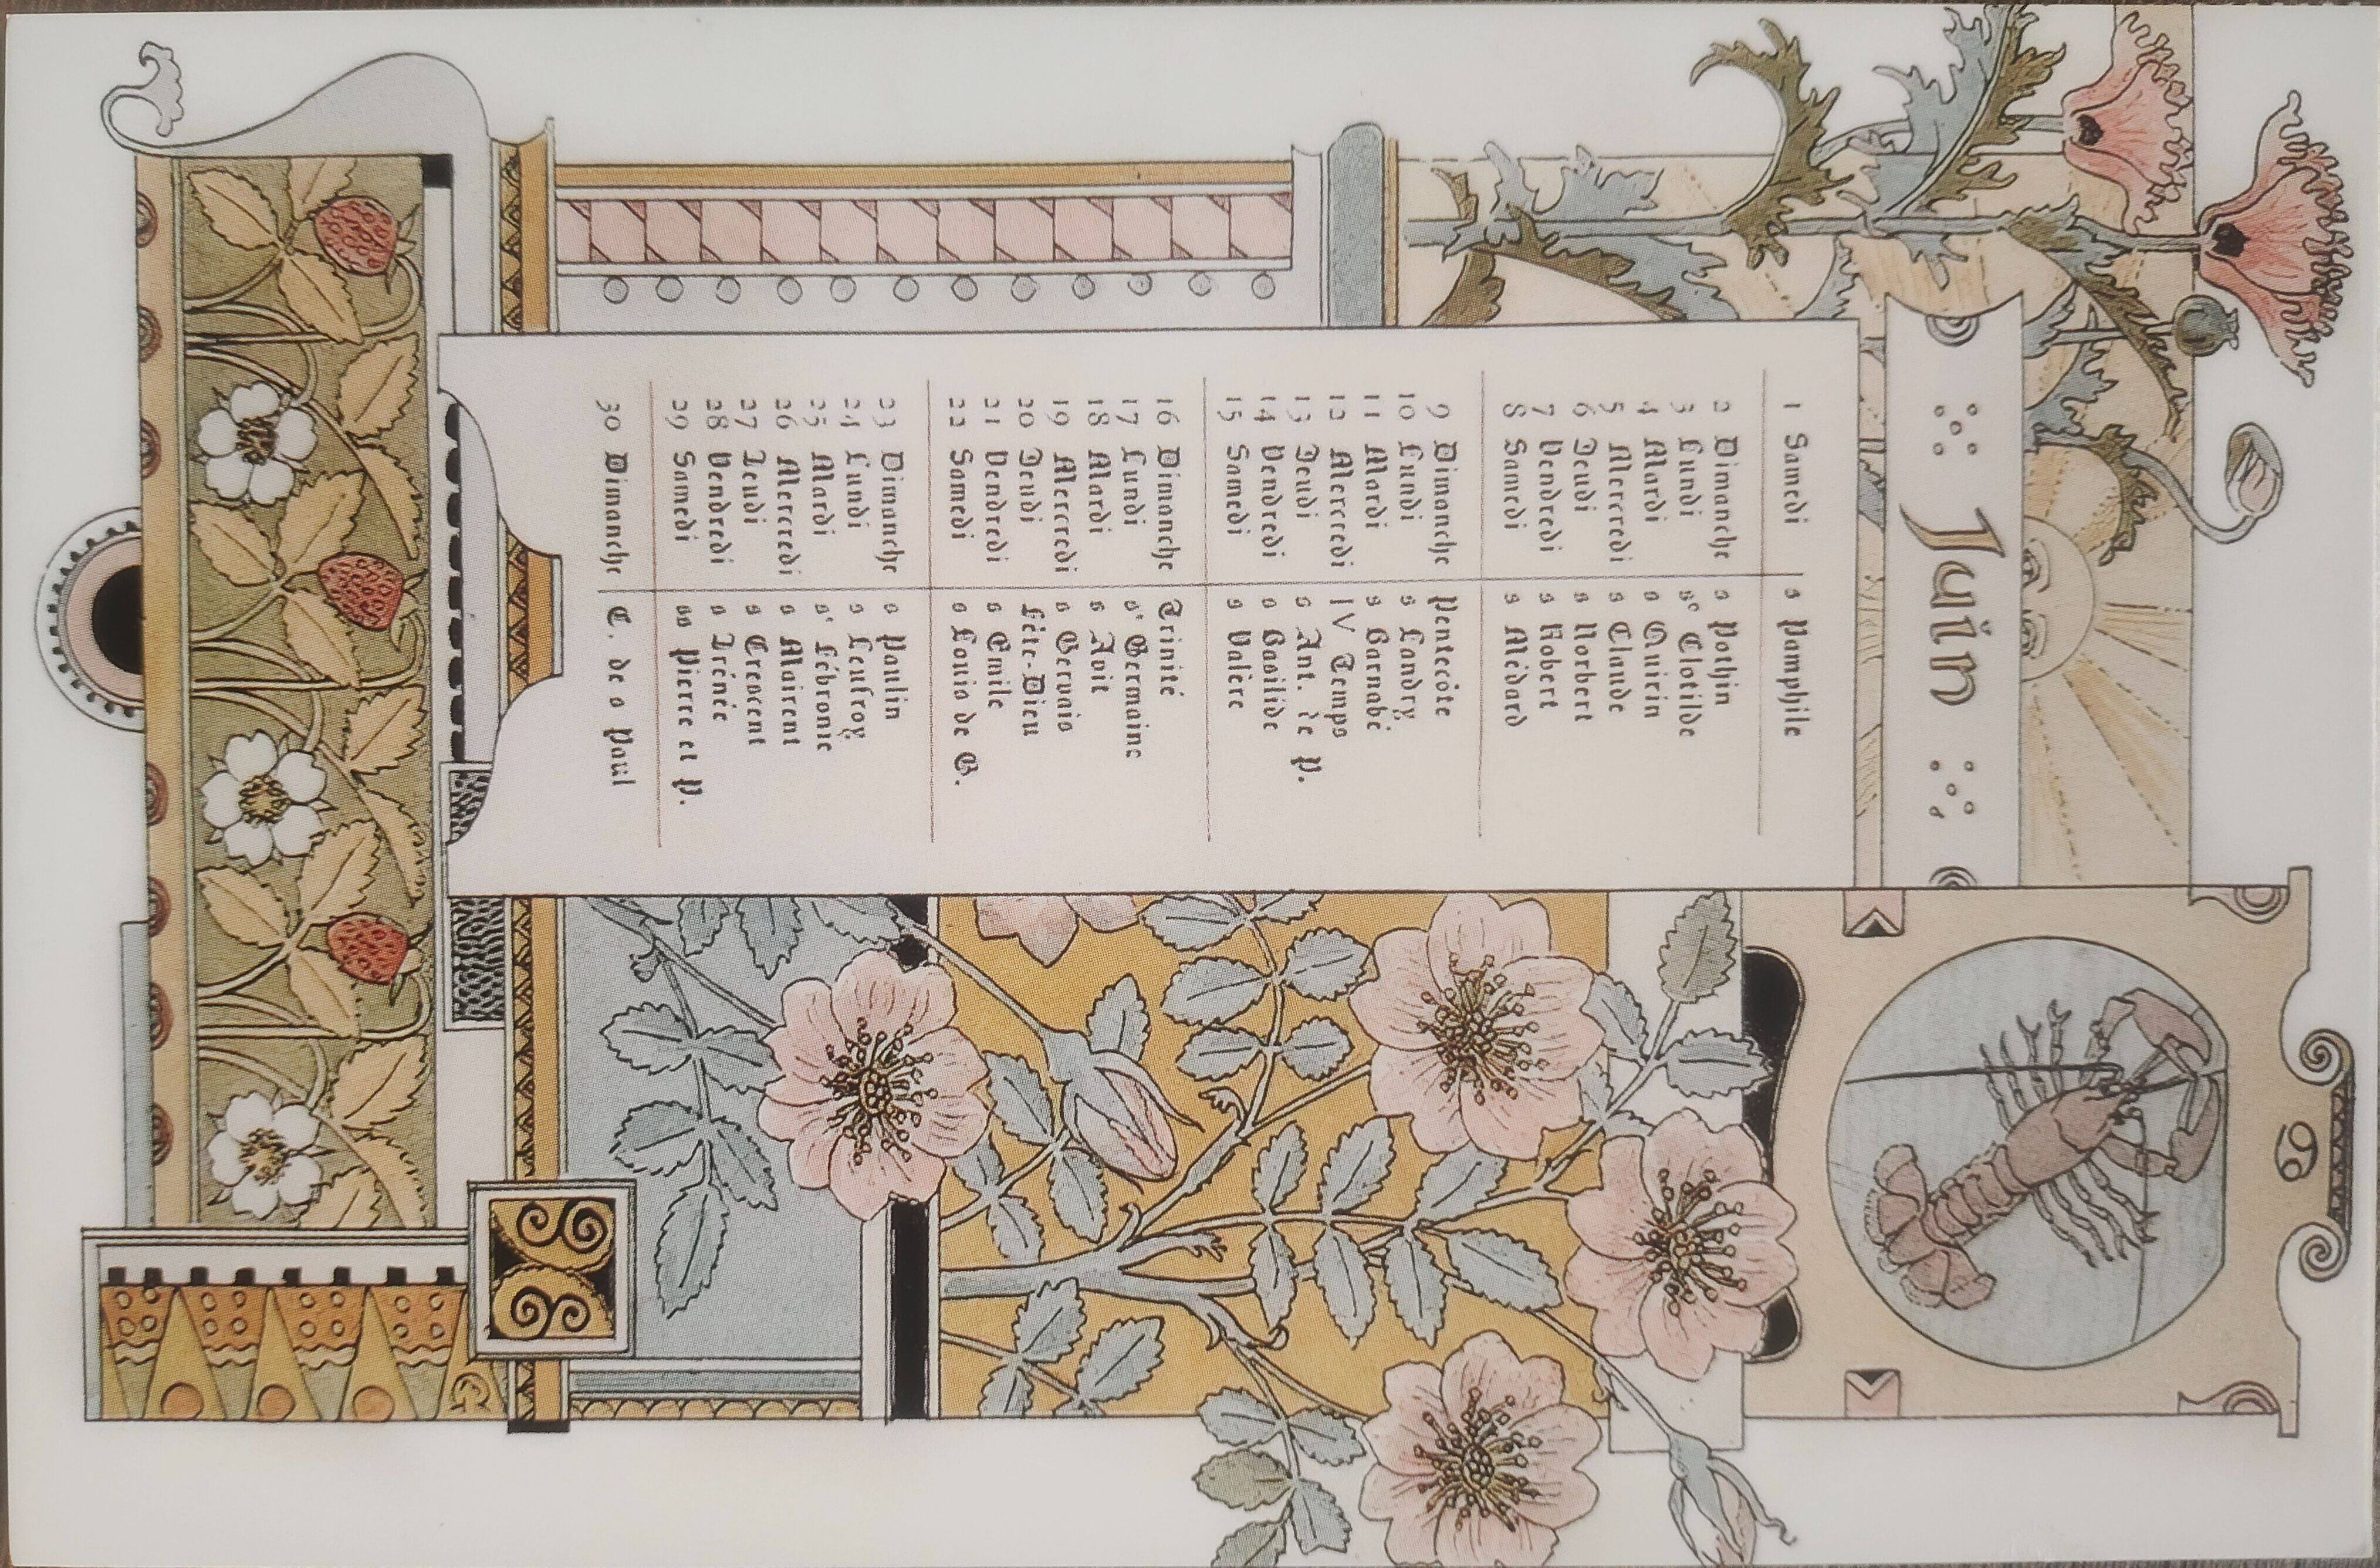 ♋
Juin
1 Samedi s Pamphile
2 Dimanche s Pothin
3 Lundi sᵉ Clotilde
4 Mardi s Quirin
5 Mercredi s Claude
6 Jeudi s Norbert
7 Vendredi s Robert
8 Samedi s Médard
9 Dimanche Pentecôte
10 Lundi s Landry
11 Mardi s Barnabé
12 Mercredi IV Temps
13 Jeudi s Ant. de P.
14 Vendredi s Basilide
15 Samedi s Valère
16 Dimanche Trinité
17 Lundi sᵉ Germaine
18 Mardi s Avit
19 Mercredi s Gervais
20 Jeudi Fête-Dieu
21 Vendredi s Emile
22 Samedi s Louis de G.
23 Dimanche s Paulin
24 Lundi s Leufroy
25 Mardi sᵉ Fébronie
26 Mercredi s Mairent
27 Jeudi s Crescent
28 Vendredi s Irénée
29 Samedi ss Pierre et P.
30 Dimanche C. de s Paul